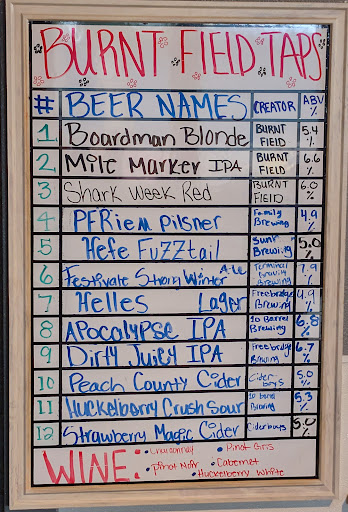 BURNT FIELD TAPS
# BEER NAMES CREATOR ABV %
1 Boardman Blonde BURNT FIELD 5.4 %
2 Mile Marker IPA BURNT FIELD 6.6 %
3 Shark Week Red BURNT FIELD 6.0 %
4 PFRiem Pilsner Family Brewing 4.9 %
5 Hefe Fuzztail Sunriver Brewing 5.0 %
6 Festivate Strong Winter Ale Terminal Gravity Brewing 7.9 %
7 Helles Lager Freebridge Brewing 4.9 %
8 Apocalypse IPA 10 Barrel Brewing 6.8 %
9 Dirty Juicy IPA Freebridge Brewing 6.7 %
10 Peach County Cider Ciderboys 5.0 %
11 Huckelberry Crush Sour 10 Barrel Brewing 5.3 %
12 Strawberry Magic Cider Ciderboys 5.0 %
WINE: • Chardonnay • Pinot Gris
• Pinot Noir • Cabernet
• Huckelberry White